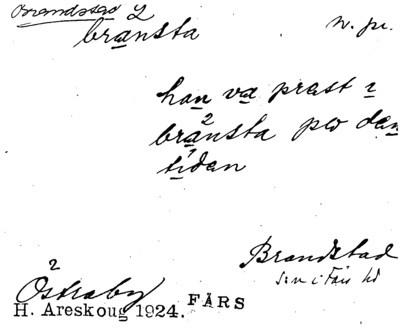 Brandstad 2
bransta n. pr.
han va prest i
bransta po dan
tidan
Brandstad
sn i Färs hd
Östraby
H. Areskoug 1924. FÄRS